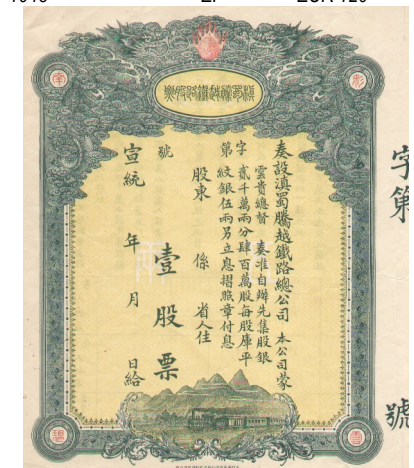 滇蜀騰越鐵路股票
彩
南
奏設滇蜀騰越鐵路總公司 本公司蒙
雲貴總督 奏准自辦先集股銀
字 貳千萬兩分肆百萬股每股庫平
第 紋銀伍兩另立息摺照章付息
股東 係 省人住
號 壹股票
宣統 年 月 日給
雲
字第 號